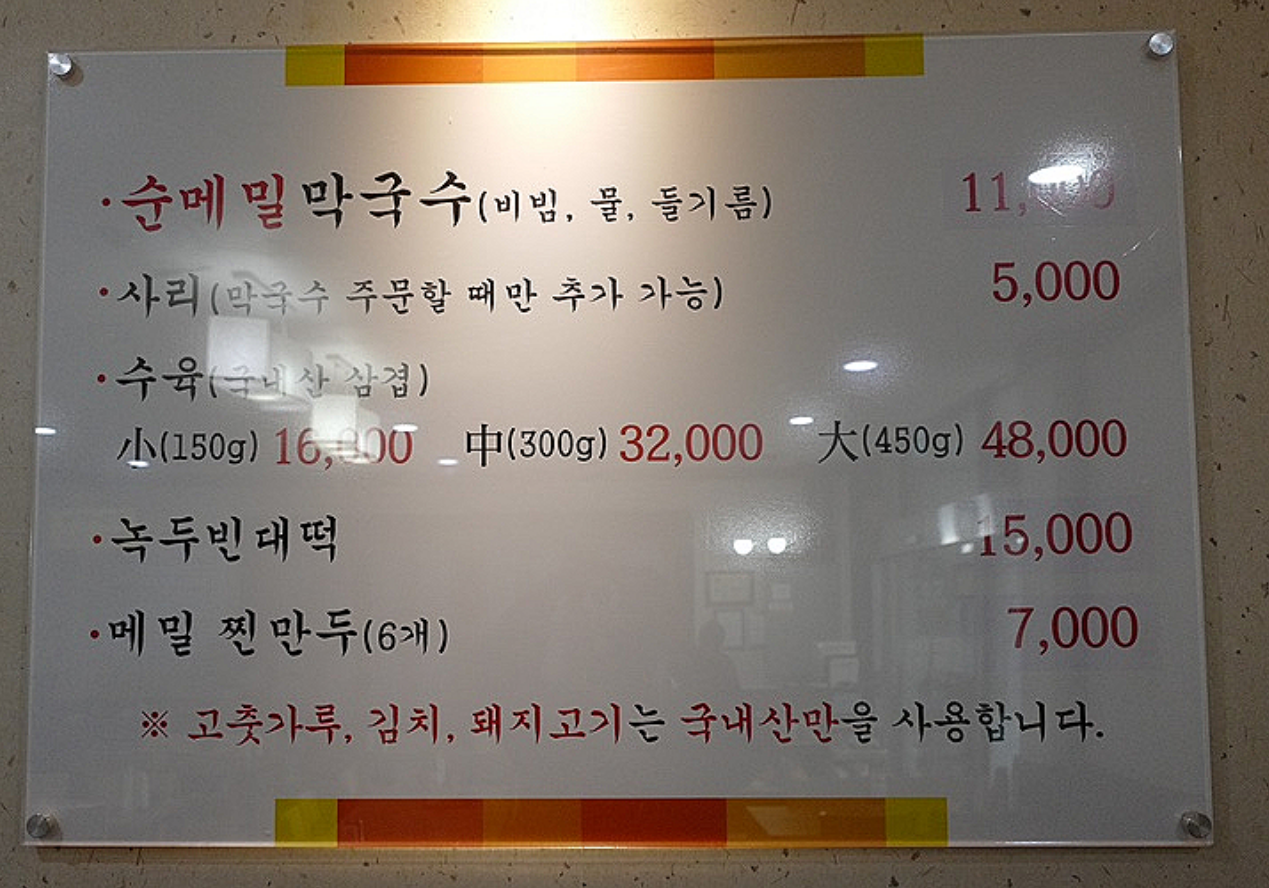 ·순메밀막국수(비빔, 물, 들기름) 11,000
·사리(막국수 주문할 때만 추가 가능) 5,000
·수육(국내산 삼겹)
小(150g) 16,000 中(300g) 32,000 大(450g) 48,000
·녹두빈대떡 15,000
·메밀 찐만두(6개) 7,000
※ 고춧가루, 김치, 돼지고기는 국내산만을 사용합니다.